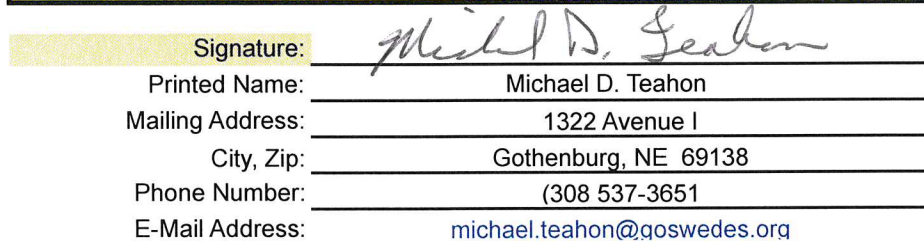 Signature: Michael D. Teahon
Printed Name: Michael D. Teahon
Mailing Address: 1322 Avenue I
City, Zip: Gothenburg, NE 69138
Phone Number: (308 537-3651
E-Mail Address: michael.teahon@goswedes.org